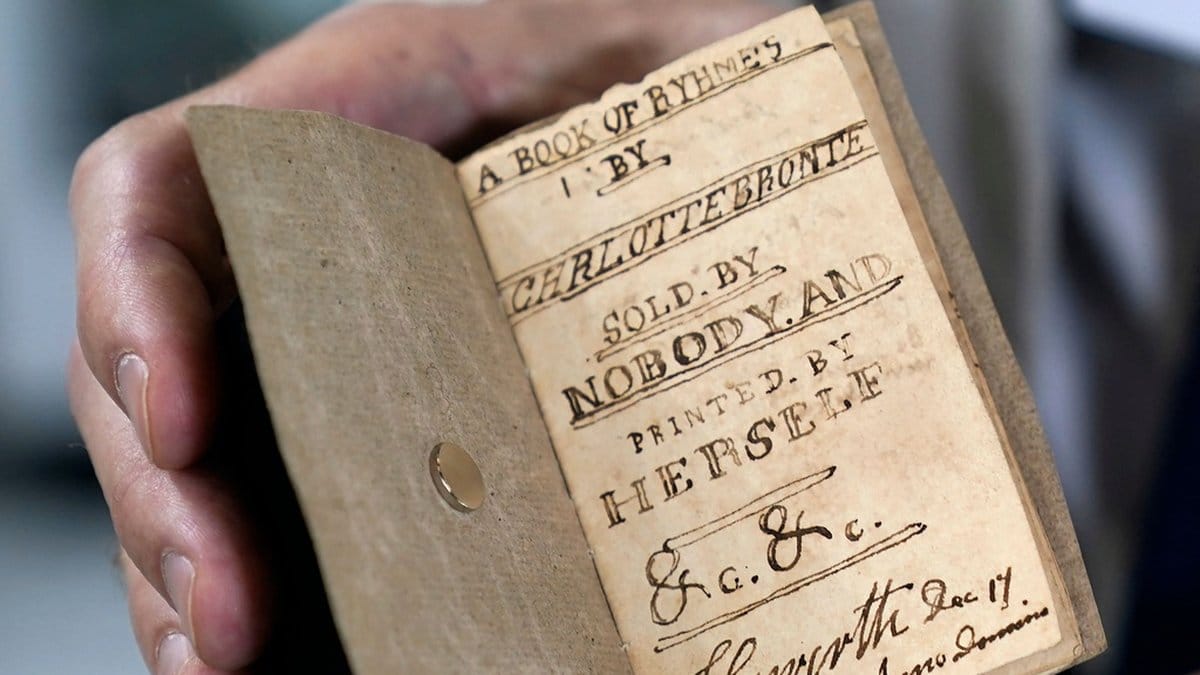 A BOOK OF RYHME'S
BY
CHARLOTTE BRONTE
SOLD. BY
NOBODY. AND
PRINTED. BY
HERSELF
&c. &c.
Haworth Dec 17
Anno Domino